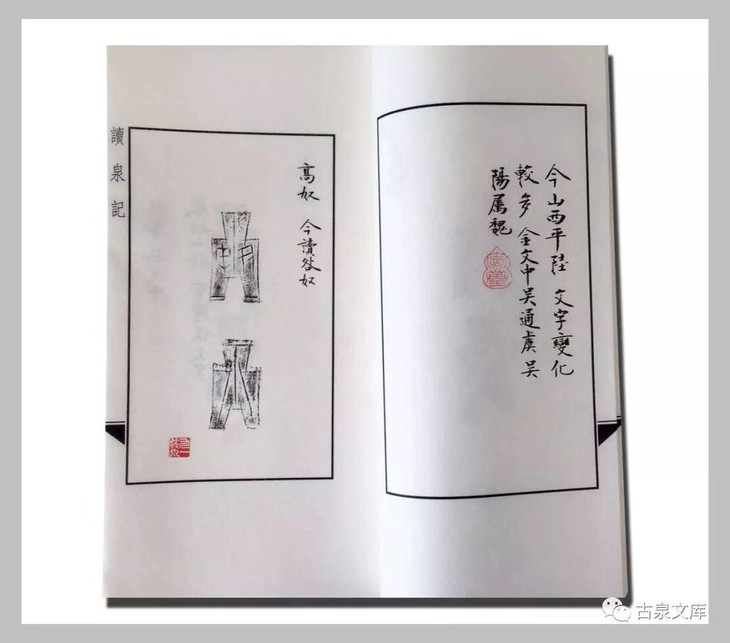 今山西平陸 文字變化
較多 金文中吴通虞 吴
陽属魏
高奴 今讀咎奴
讀泉記
古泉文库